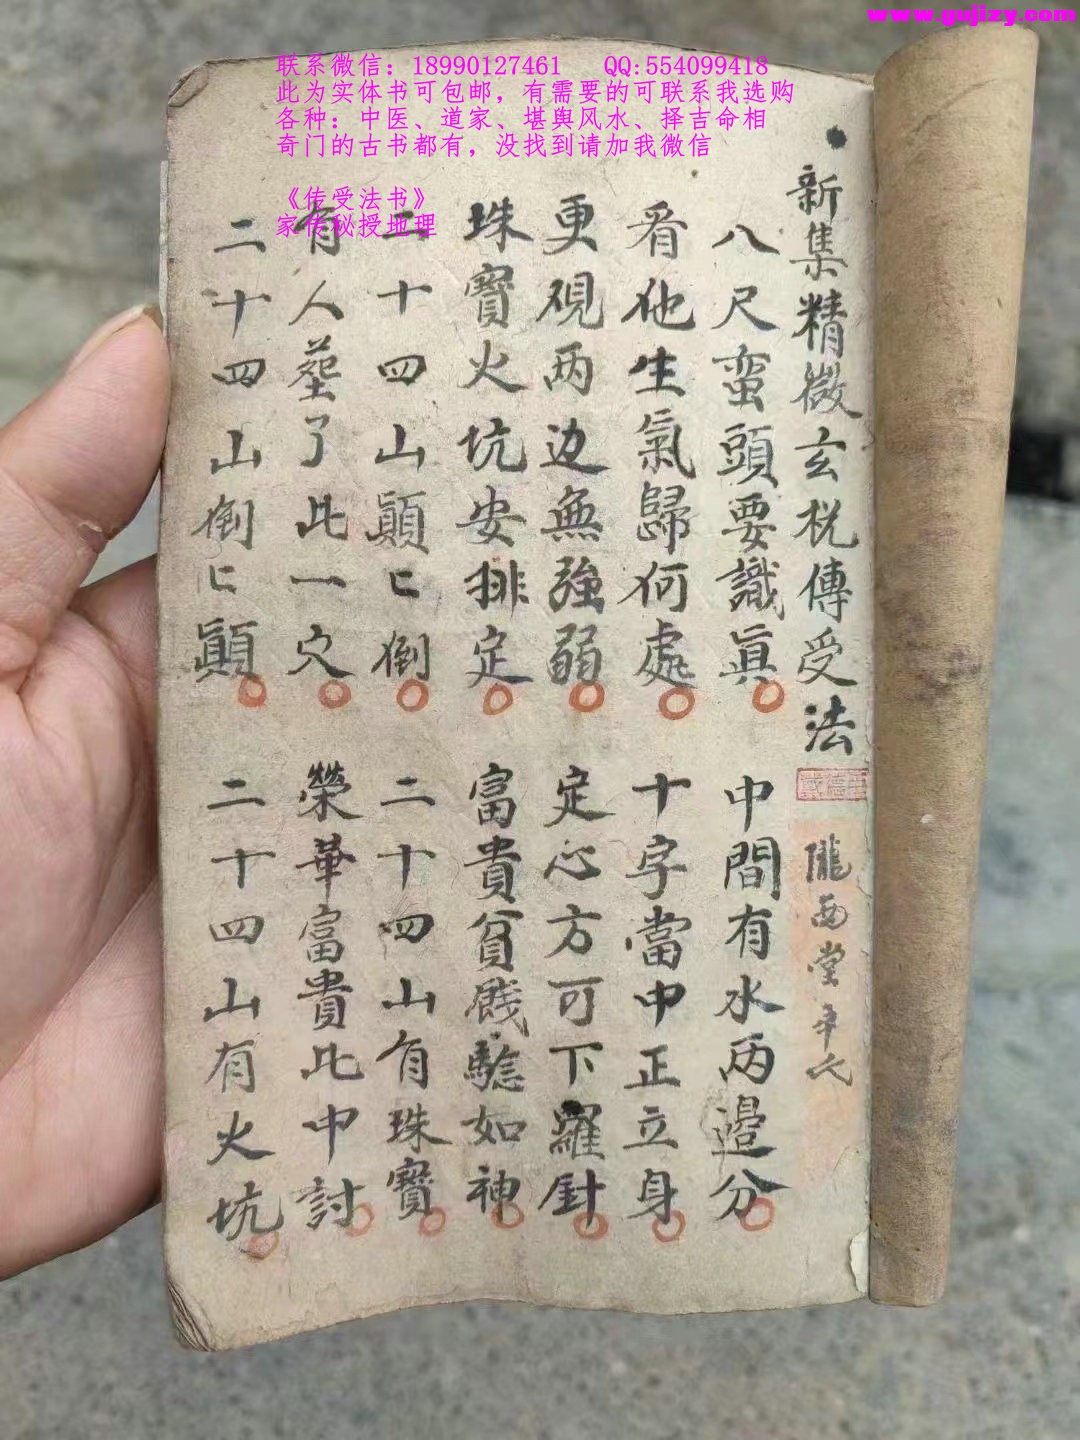 www.gujizy.com
联系微信：18990127461 QQ:554099418
此为实体书可包邮，有需要的可联系我选购
各种：中医、道家、堪舆风水、择吉命相
奇门的古书都有，没找到请加我微信
《传受法书》
家传秘授地理
新集精微玄枕傳受法
隴西堂
八尺蛮頭要識眞 中間有水两邉分
看他生氣歸何處 十字當中正立身
更硯两边無強弱 定心方可下羅針
珠寳火坑安排定 富貴貧賤驗如神
二十四山顛匕倒 二十四山有珠寳
有人塟了此一穴 榮華富貴此中討
二十四山倒匕顛 二十四山有火坑